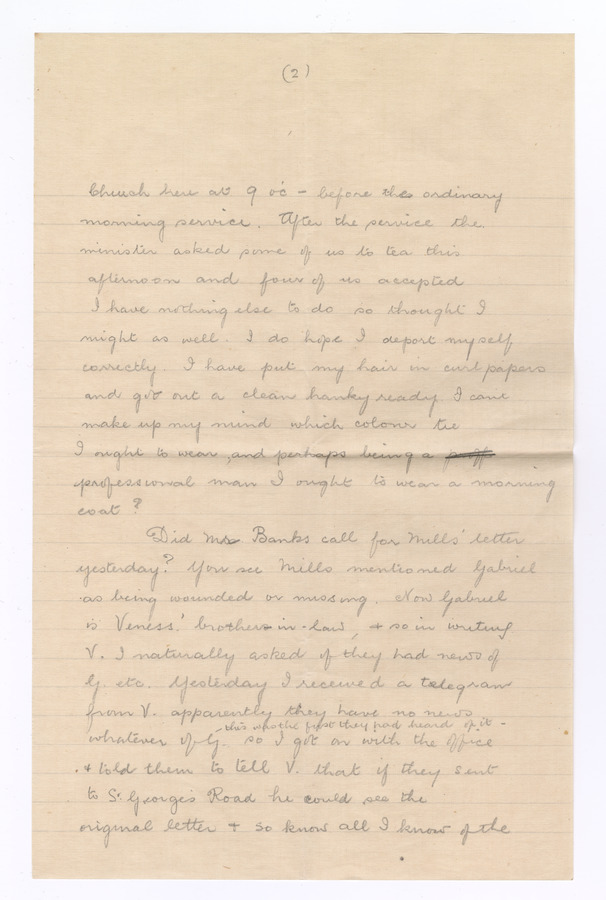 (2)
Church here at 9 oc - before the ordinary
morning service. After the service the
minister asked some of us to tea this
afternoon and four of us accepted
I have nothing else to do so thought I
might as well. I do hope I deport myself
correctly. I have put my hair in curl papers
and got out a clean hanky ready I cant
make up my mind which colour tie
I ought to wear, and perhaps being a
professional man I ought to wear a morning
coat?
Did Mrs Banks call for Mills' letter
yesterday? You see Mills mentioned Gabriel
as being wounded or missing. Now Gabriel
is Veness' brother-in-law, & so in writing
V. I naturally asked if they had news of
G. etc. Yesterday I received a telegram
from V. apparently they have no news
this was the first they had heard of it -
whatever of G. so I got on with the office
& told them to tell V. that if they sent
to St Georges Road he could see the
original letter & so know all I know of the